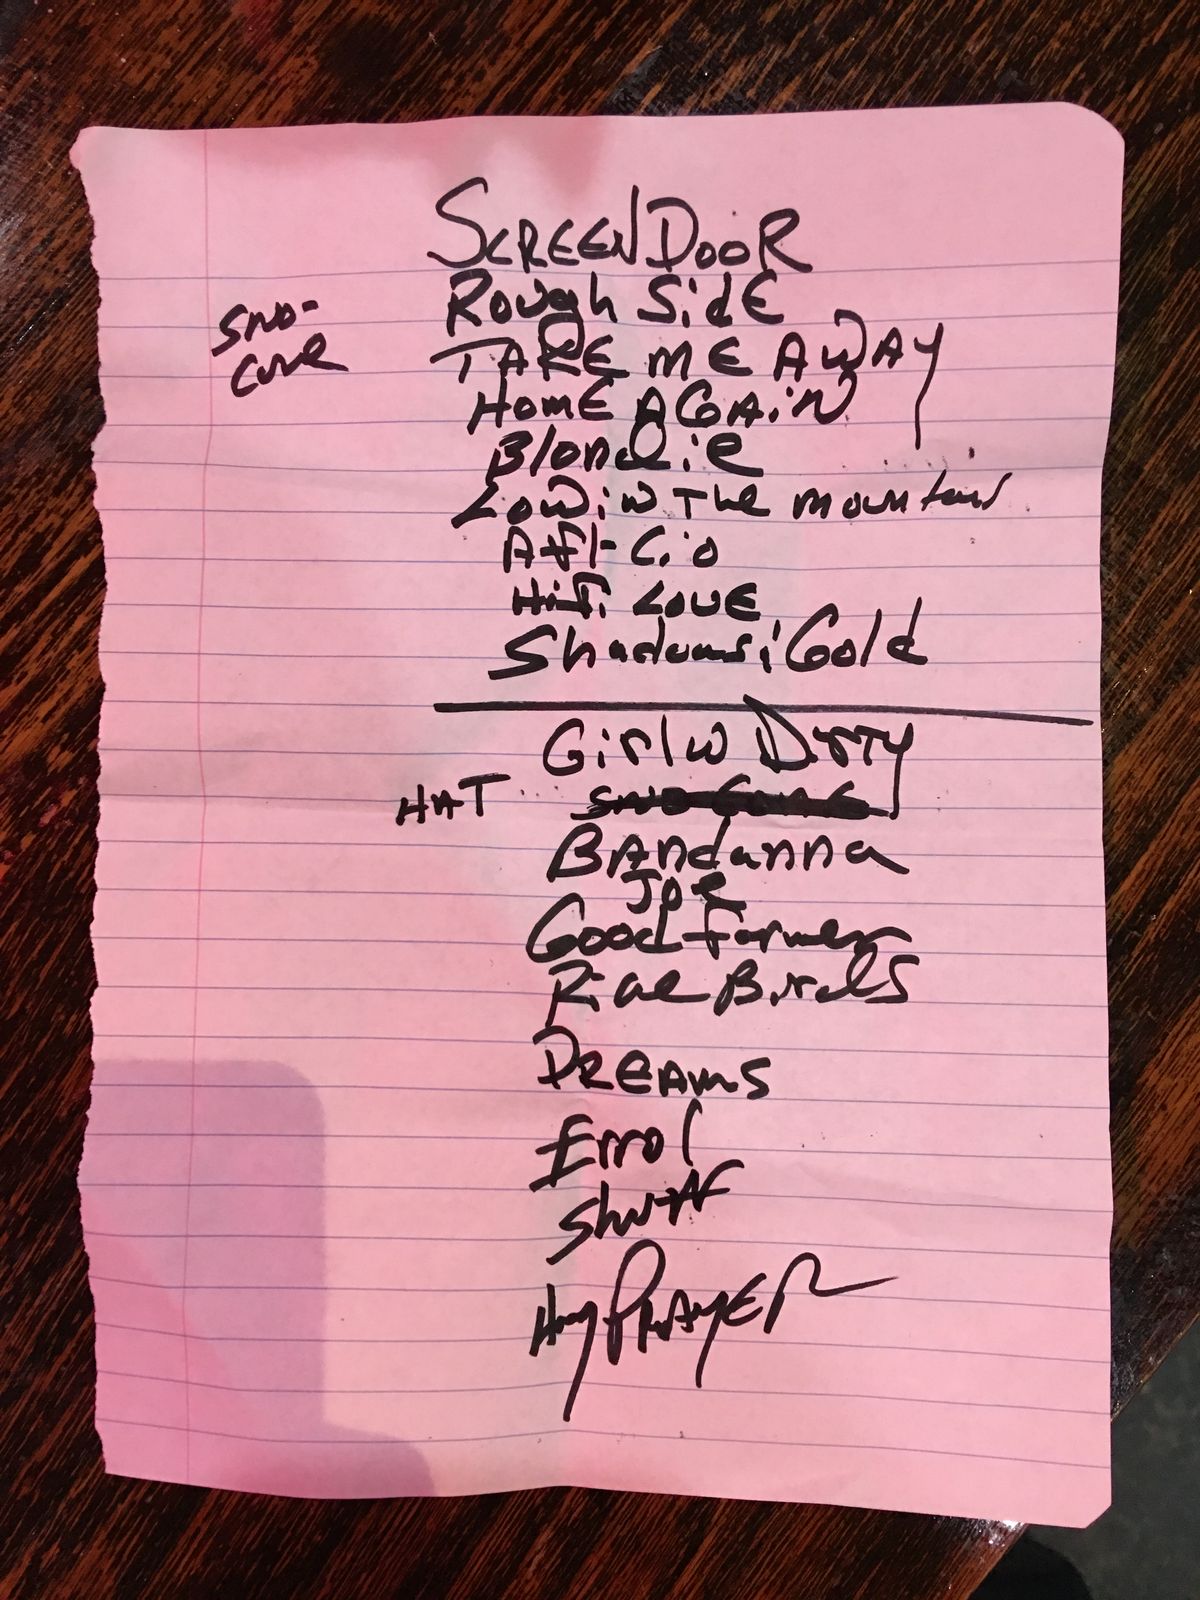 SCREEN DOOR
Rough SidE
SNO-
CONE
TAKE ME AWAY
HOME AGAiN
Blondie
Low iN The mountains
Afl-Cio
HiFi LOVE
Shadows i Gold
Girl w Dirty
HAT
BAndanna
JOE
Good farmer
Rice Birds
DREAms
Errol
PRAYER